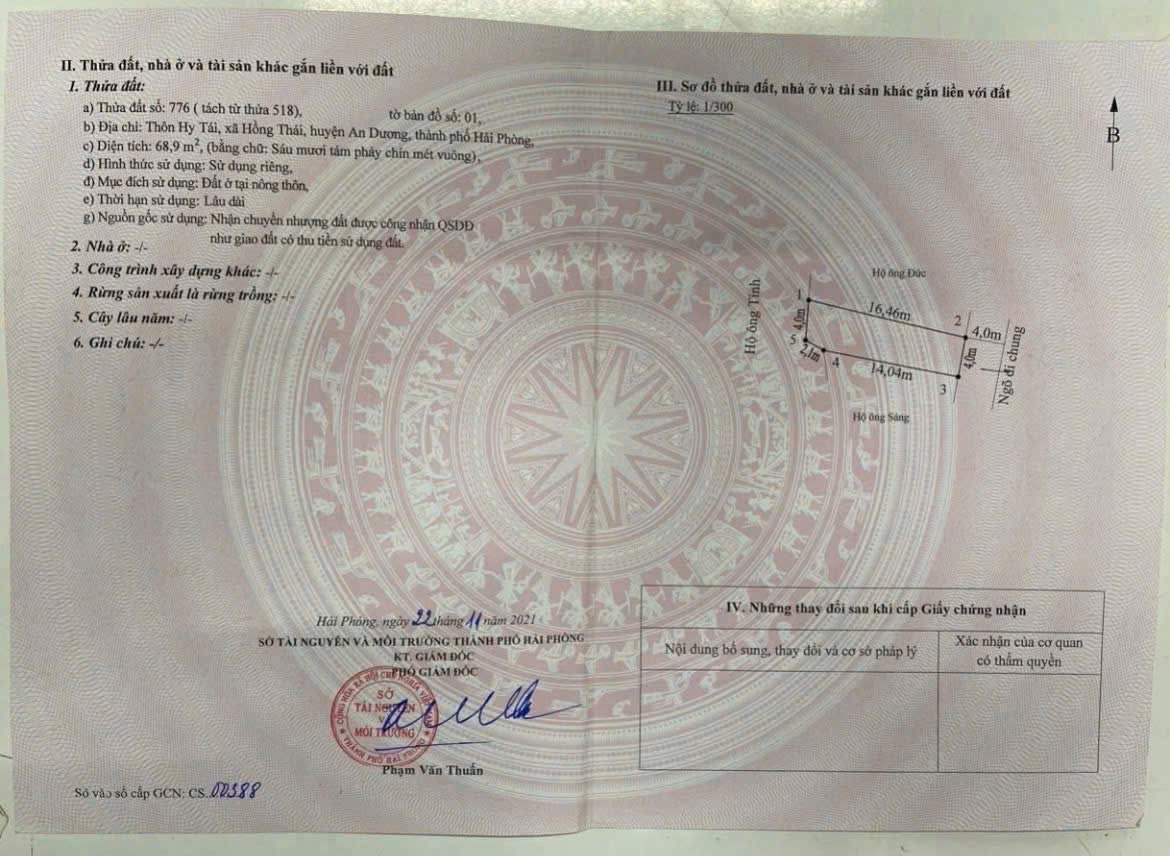 II. Thửa đất, nhà ở và tài sản khác gắn liền với đất
1. Thửa đất:
a) Thửa đất số: 776 ( tách từ thửa 518), tờ bản đồ số: 01,
b) Địa chỉ: Thôn Hy Tái, xã Hồng Thái, huyện An Dương, thành phố Hải Phòng,
c) Diện tích: 68,9 m², (bằng chữ: Sáu mươi tám phảy chín mét vuông),
d) Hình thức sử dụng: Sử dụng riêng,
đ) Mục đích sử dụng: Đất ở tại nông thôn,
e) Thời hạn sử dụng: Lâu dài
g) Nguồn gốc sử dụng: Nhận chuyển nhượng đất được công nhận QSDĐ
như giao đất có thu tiền sử dụng đất.
2. Nhà ở: -/-
3. Công trình xây dựng khác: -/-
4. Rừng sản xuất là rừng trồng: -/-
5. Cây lâu năm: -/-
6. Ghi chú: -/-
Hải Phòng, ngày 22 tháng 11 năm 2021
SỞ TÀI NGUYÊN VÀ MÔI TRƯỜNG THÀNH PHỐ HẢI PHÒNG
KT. GIÁM ĐỐC
PHÓ GIÁM ĐỐC
CỘNG HÒA XÃ HỘI CHỦ NGHĨA VIỆT NAM
SỞ
TÀI NGUYÊN
VÀ
MÔI TRƯỜNG
THÀNH PHỐ HẢI PHÒNG
Phạm Văn Thuấn
Số vào sổ cấp GCN: CS..00388
III. Sơ đồ thửa đất, nhà ở và tài sản khác gắn liền với đất
Tỷ lệ: 1/300
B
Hộ ông Đức
Hộ ông Tính
1
16,46m
2
4,0m
4,0m
4,0m
5
2,1m
4
14,04m
3
Ngõ đi chung
Hộ ông Sáng
IV. Những thay đổi sau khi cấp Giấy chứng nhận
Nội dung bổ sung, thay đổi và cơ sở pháp lý
Xác nhận của cơ quan
có thẩm quyền